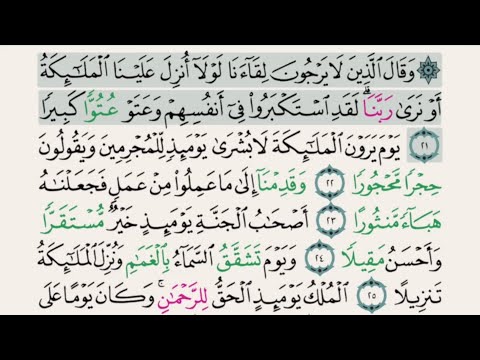 ۞ وَقَالَ الَّذِينَ لَا يَرْجُونَ لِقَاءَنَا لَوْلَا أُنزِلَ عَلَيْنَا الْمَلَائِكَةُ
أَوْ نَرَىٰ رَبَّنَا ۗ لَقَدِ اسْتَكْبَرُوا فِي أَنفُسِهِمْ وَعَتَوْ عُتُوًّا كَبِيرًا
٢١ يَوْمَ يَرَوْنَ الْمَلَائِكَةَ لَا بُشْرَىٰ يَوْمَئِذٍ لِّلْمُجْرِمِينَ وَيَقُولُونَ
حِجْرًا مَّحْجُورًا ٢٢ وَقَدِمْنَا إِلَىٰ مَا عَمِلُوا مِنْ عَمَلٍ فَجَعَلْنَاهُ
هَبَاءً مَّنثُورًا ٢٣ أَصْحَابُ الْجَنَّةِ يَوْمَئِذٍ خَيْرٌ مُّسْتَقَرًّا
وَأَحْسَنُ مَقِيلًا ٢٤ وَيَوْمَ تَشَقَّقُ السَّمَاءُ بِالْغَمَامِ وَنُزِّلَ الْمَلَائِكَةُ
تَنزِيلًا ٢٥ الْمُلْكُ يَوْمَئِذٍ الْحَقُّ لِلرَّحْمَٰنِ ۚ وَكَانَ يَوْمًا عَلَى